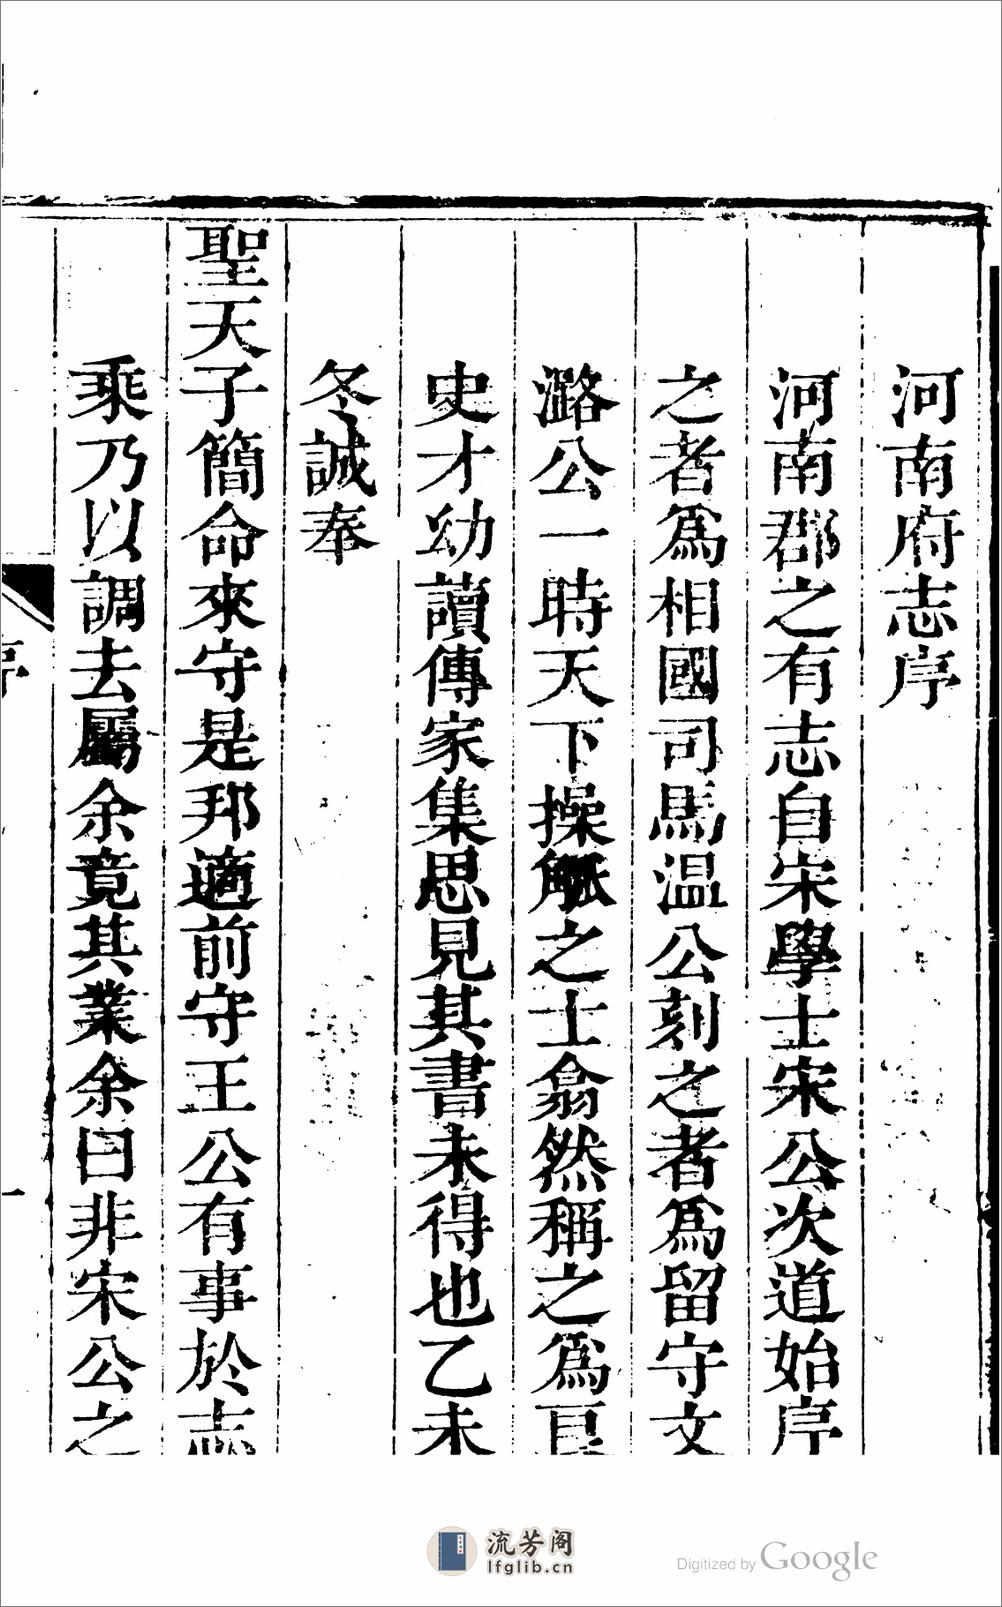 河南府志序
河南郡之有志自宋學士宋公次道始序
之者爲相國司馬温公刻之者爲留守文
潞公一時天下操觚之士翕然稱之爲良
史才幼讀傳家集思見其書未得也乙未
冬誠奉
聖天子簡命來守是邦適前守王公有事於志
乘乃以調去屬余竟其業余曰非宋公之
序
一
流芳阁
lfglib.cn
Digitized by Google